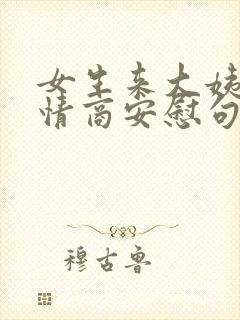 女生来大姨
情商安慰句
穆古鲁